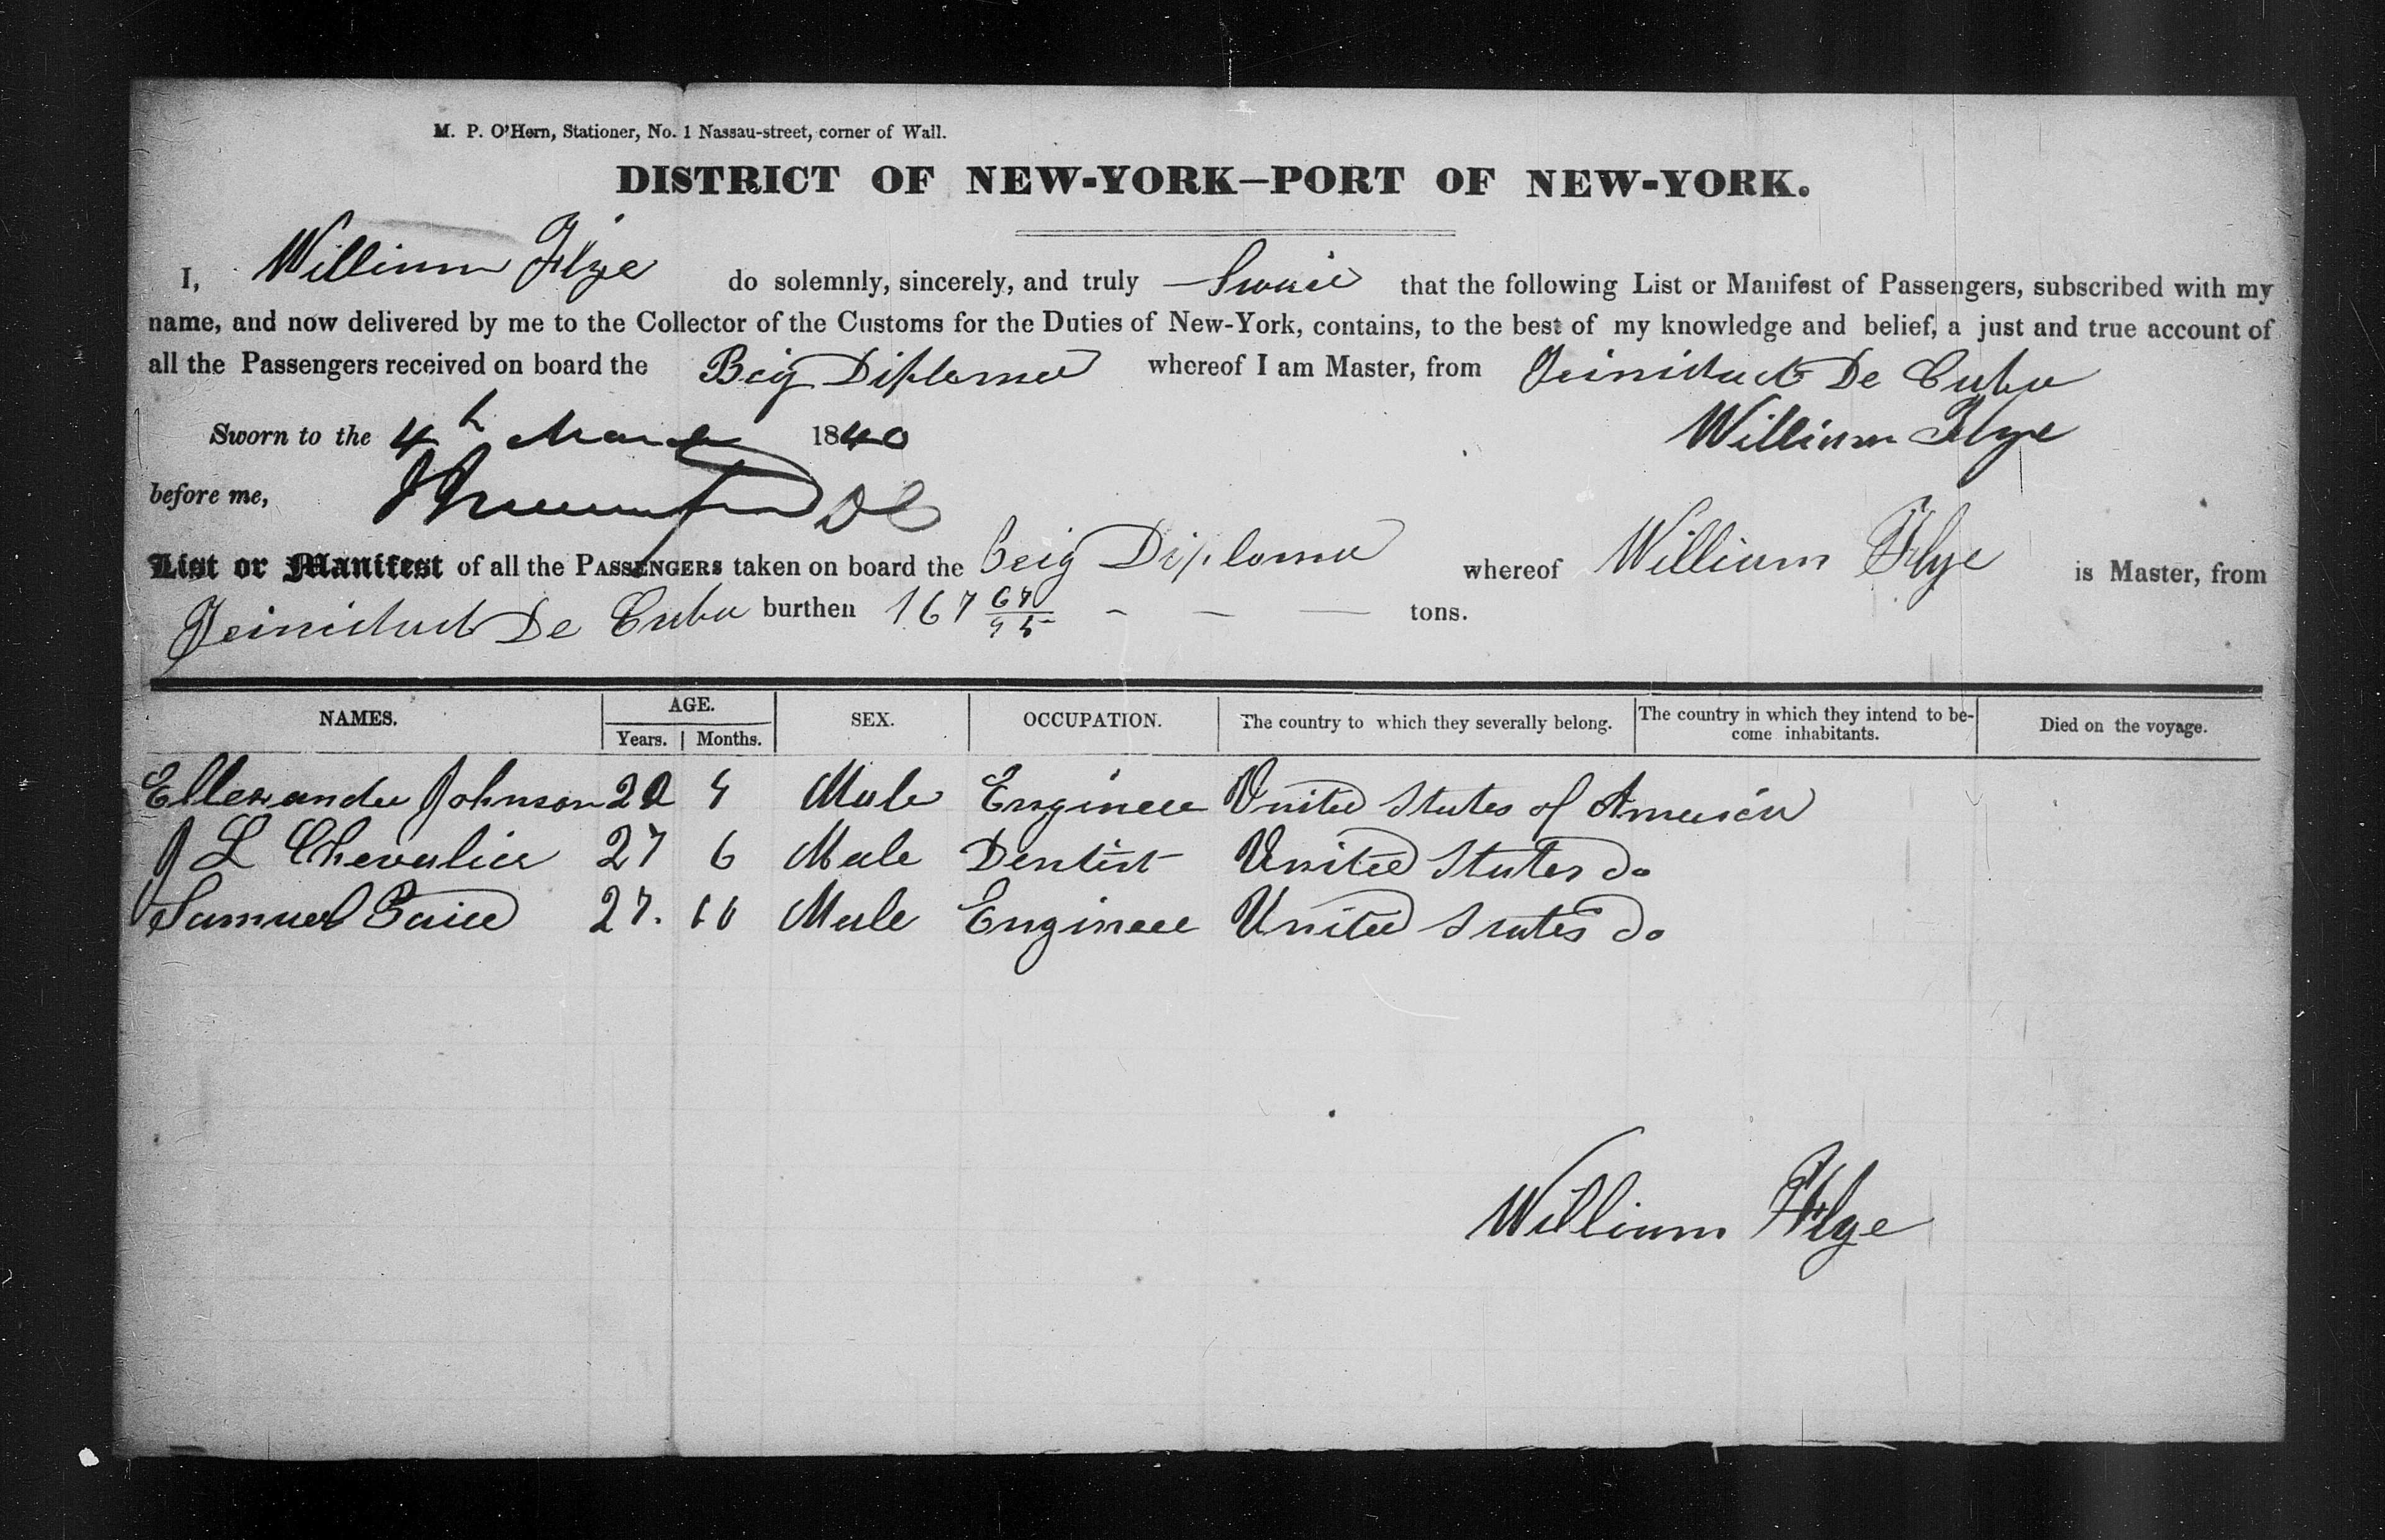 M. P. O'Hern, Stationer, No. 1 Nassau-street, corner of Wall.
DISTRICT OF NEW-YORK—PORT OF NEW-YORK.
I, William Flye do solemnly, sincerely, and truly Swair that the following List or Manifest of Passengers, subscribed with my
name, and now delivered by me to the Collector of the Customs for the Duties of New-York, contains, to the best of my knowledge and belief, a just and true account of
all the Passengers received on board the Brig Diploma whereof I am Master, from Trinidad De Cuba
Sworn to the 4th March 1840 William Flye
before me, DC
List or Manifest of all the PASSENGERS taken on board the Brig Diploma whereof William Flye is Master, from
Trinidad De Cuba burthen 167 67/95 tons.
NAMES. AGE. SEX. OCCUPATION. The country to which they severally belong. The country in which they intend to be- Died on the voyage.
Years. Months. come inhabitants.
Ellexander Johnson Male Engineer United States of America
J L Chevalier 27 6 Male Dentist United States do
Samuel 27. 10 Male Engineer United States do
William Flye